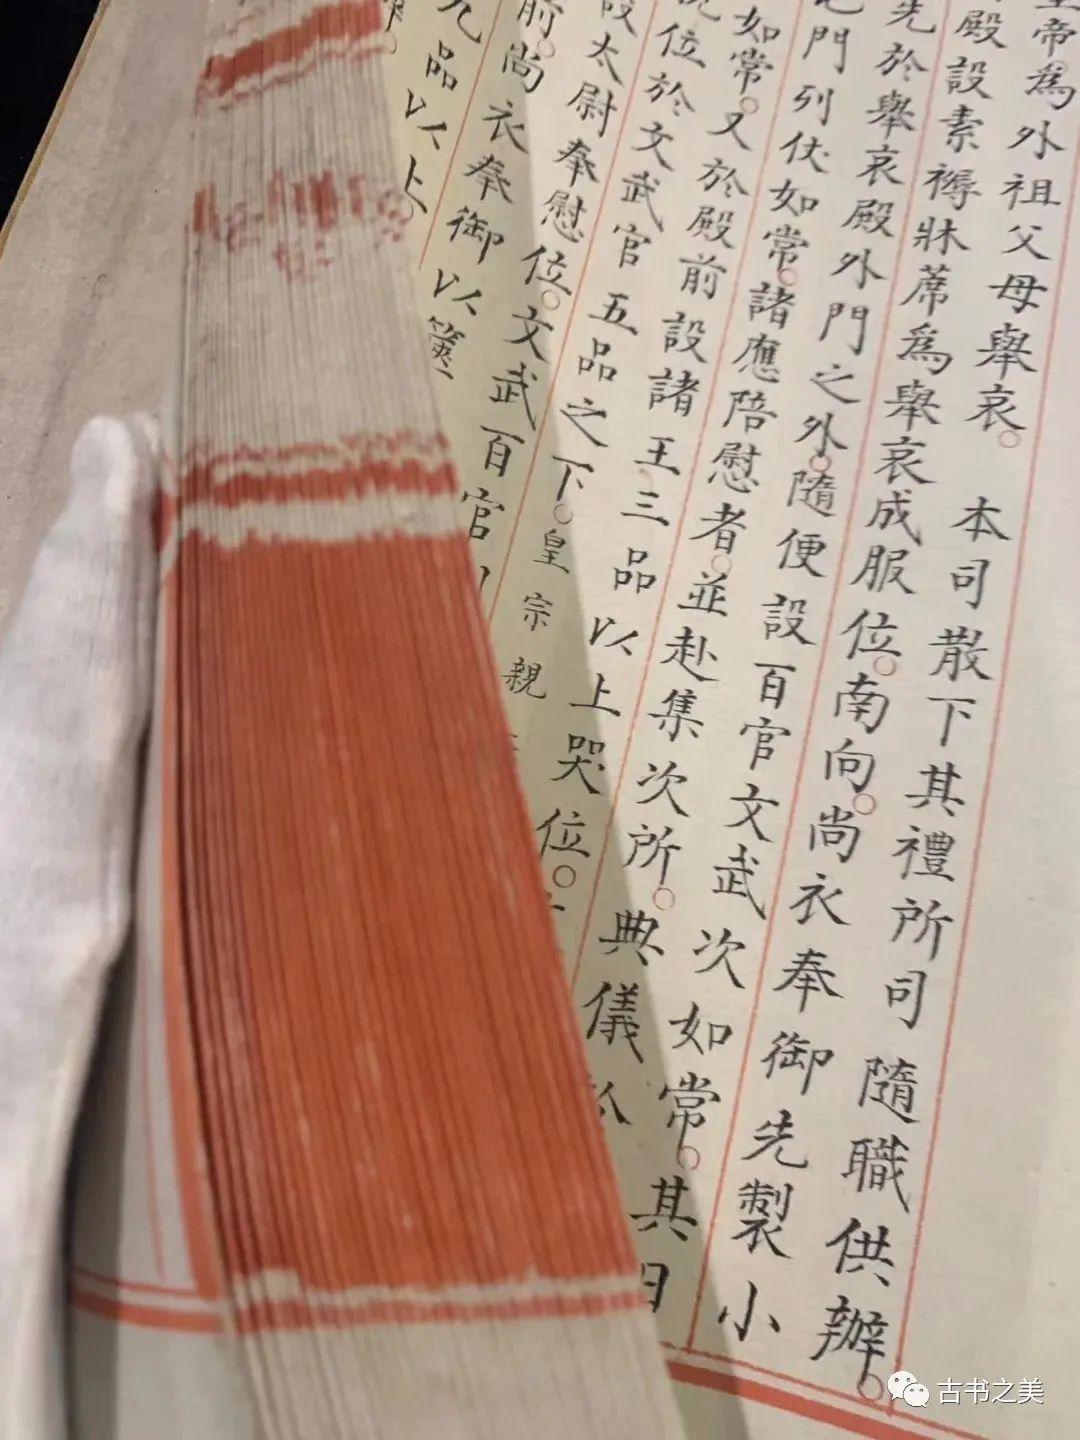 帝。為外祖父母舉哀。 本司散下其禮所司隨職供辦。
殿設素褥牀蓆為舉哀成服位。南向。尚衣奉御先製小
先於舉哀殿外門之外。隨便設百官文武次如常。其日
門列伏如常。諸應陪慰者。並赴集次所。典儀
如常。又於殿前設諸王三品以上哭位。
位於文武官五品之下。皇宗親
設太尉奉慰位。文武百官
前。尚衣奉御以篋
品以上。
古书之美